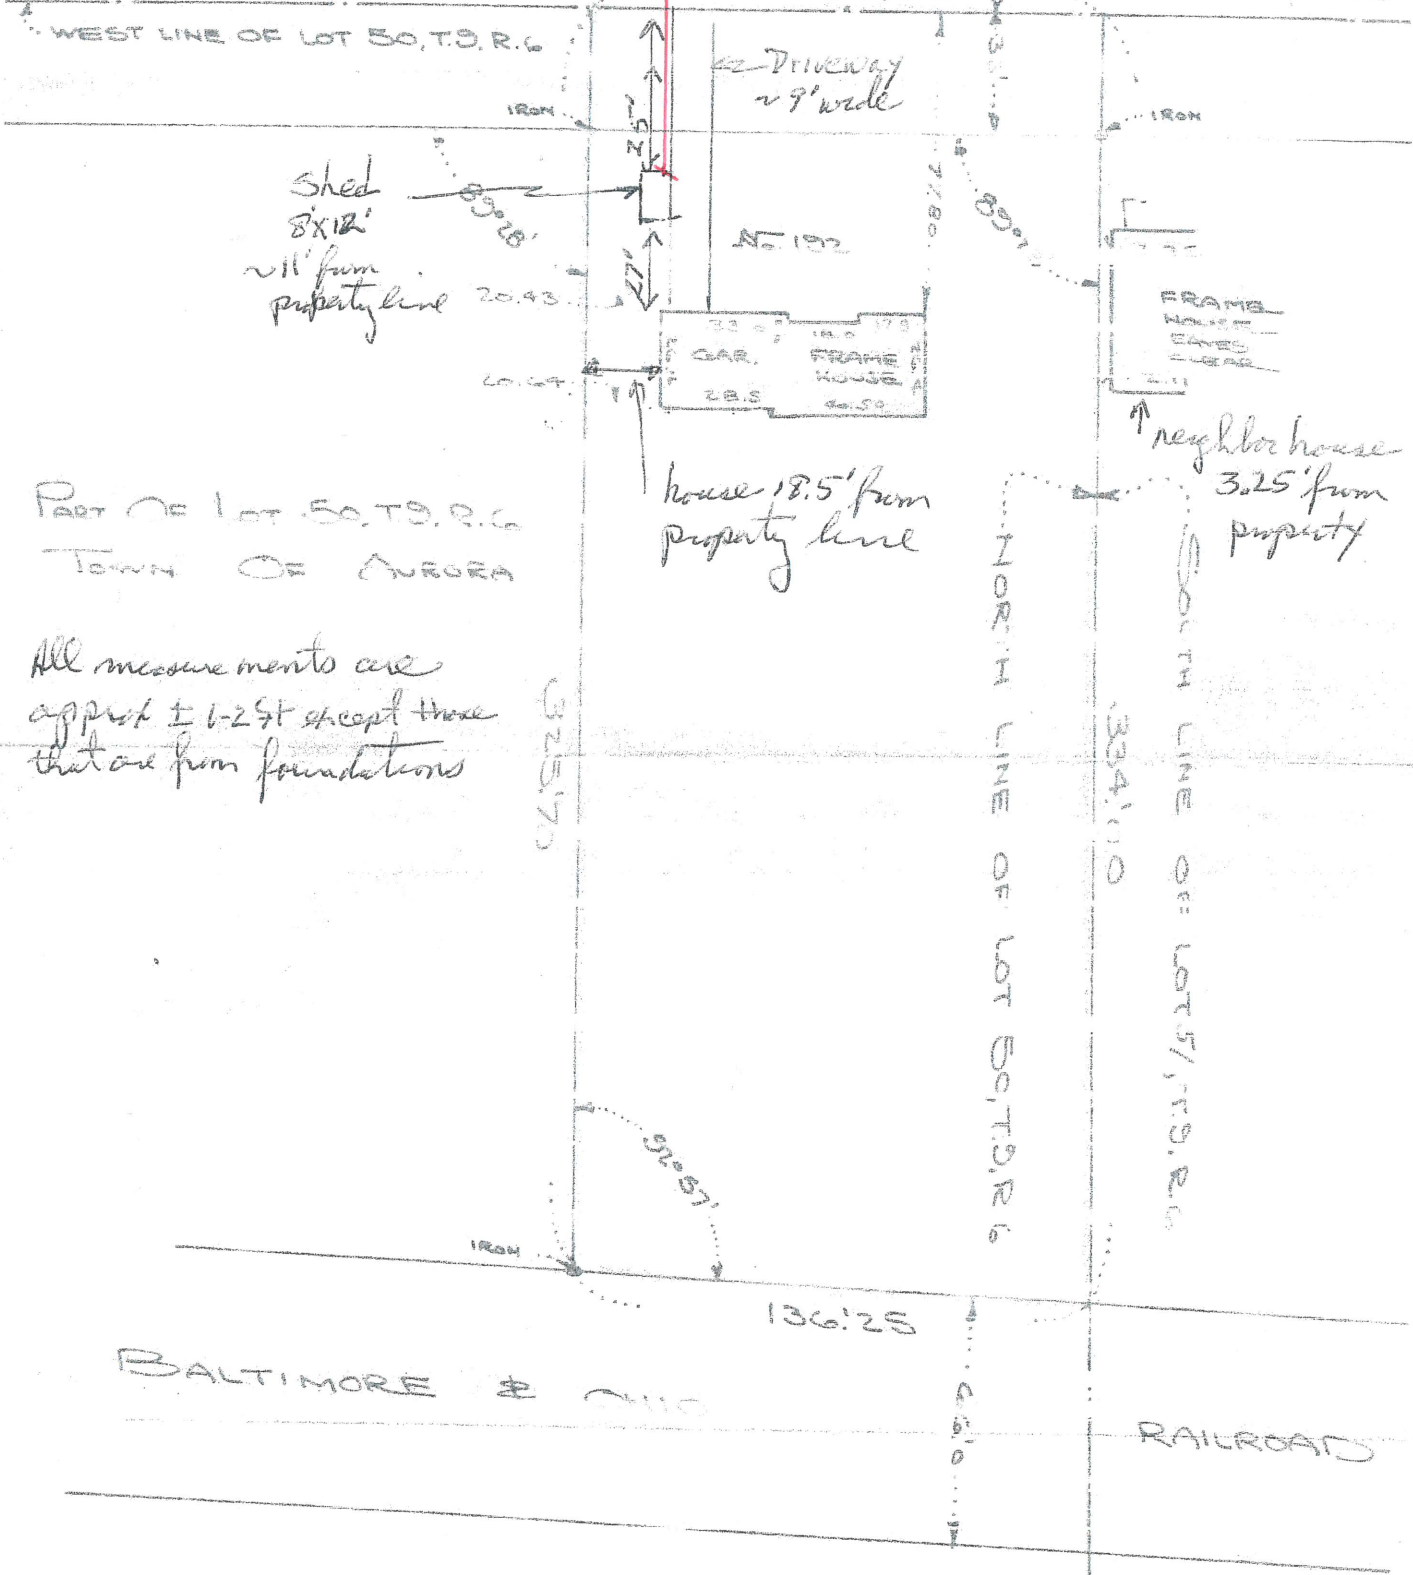 WEST LINE OF LOT 50, T.9, R.6
← Driveway
~ 9' wide
IRON
IRON
Shed
8'X12'
~11' from
property line
27'
No 192
20.43
20.64
GAR.
28.5
FRAME
HOUSE
FRAME
HOUSE
EAVES
CLEAR
2.11
neighbor house
3.25' from
property
house 18.5' from
property line
PART OF LOT 50, T.9, R.6
TOWN OF AURORA
All measurements are
approx ± 1-2 ft except those
that are from foundations
325.70
NORTH LINE OF LOT 50, T.9, R.6
SOUTH LINE OF LOT 51, T.9, R.6
92°57'
IRON
136.25
BALTIMORE & OHIO
RAILROAD